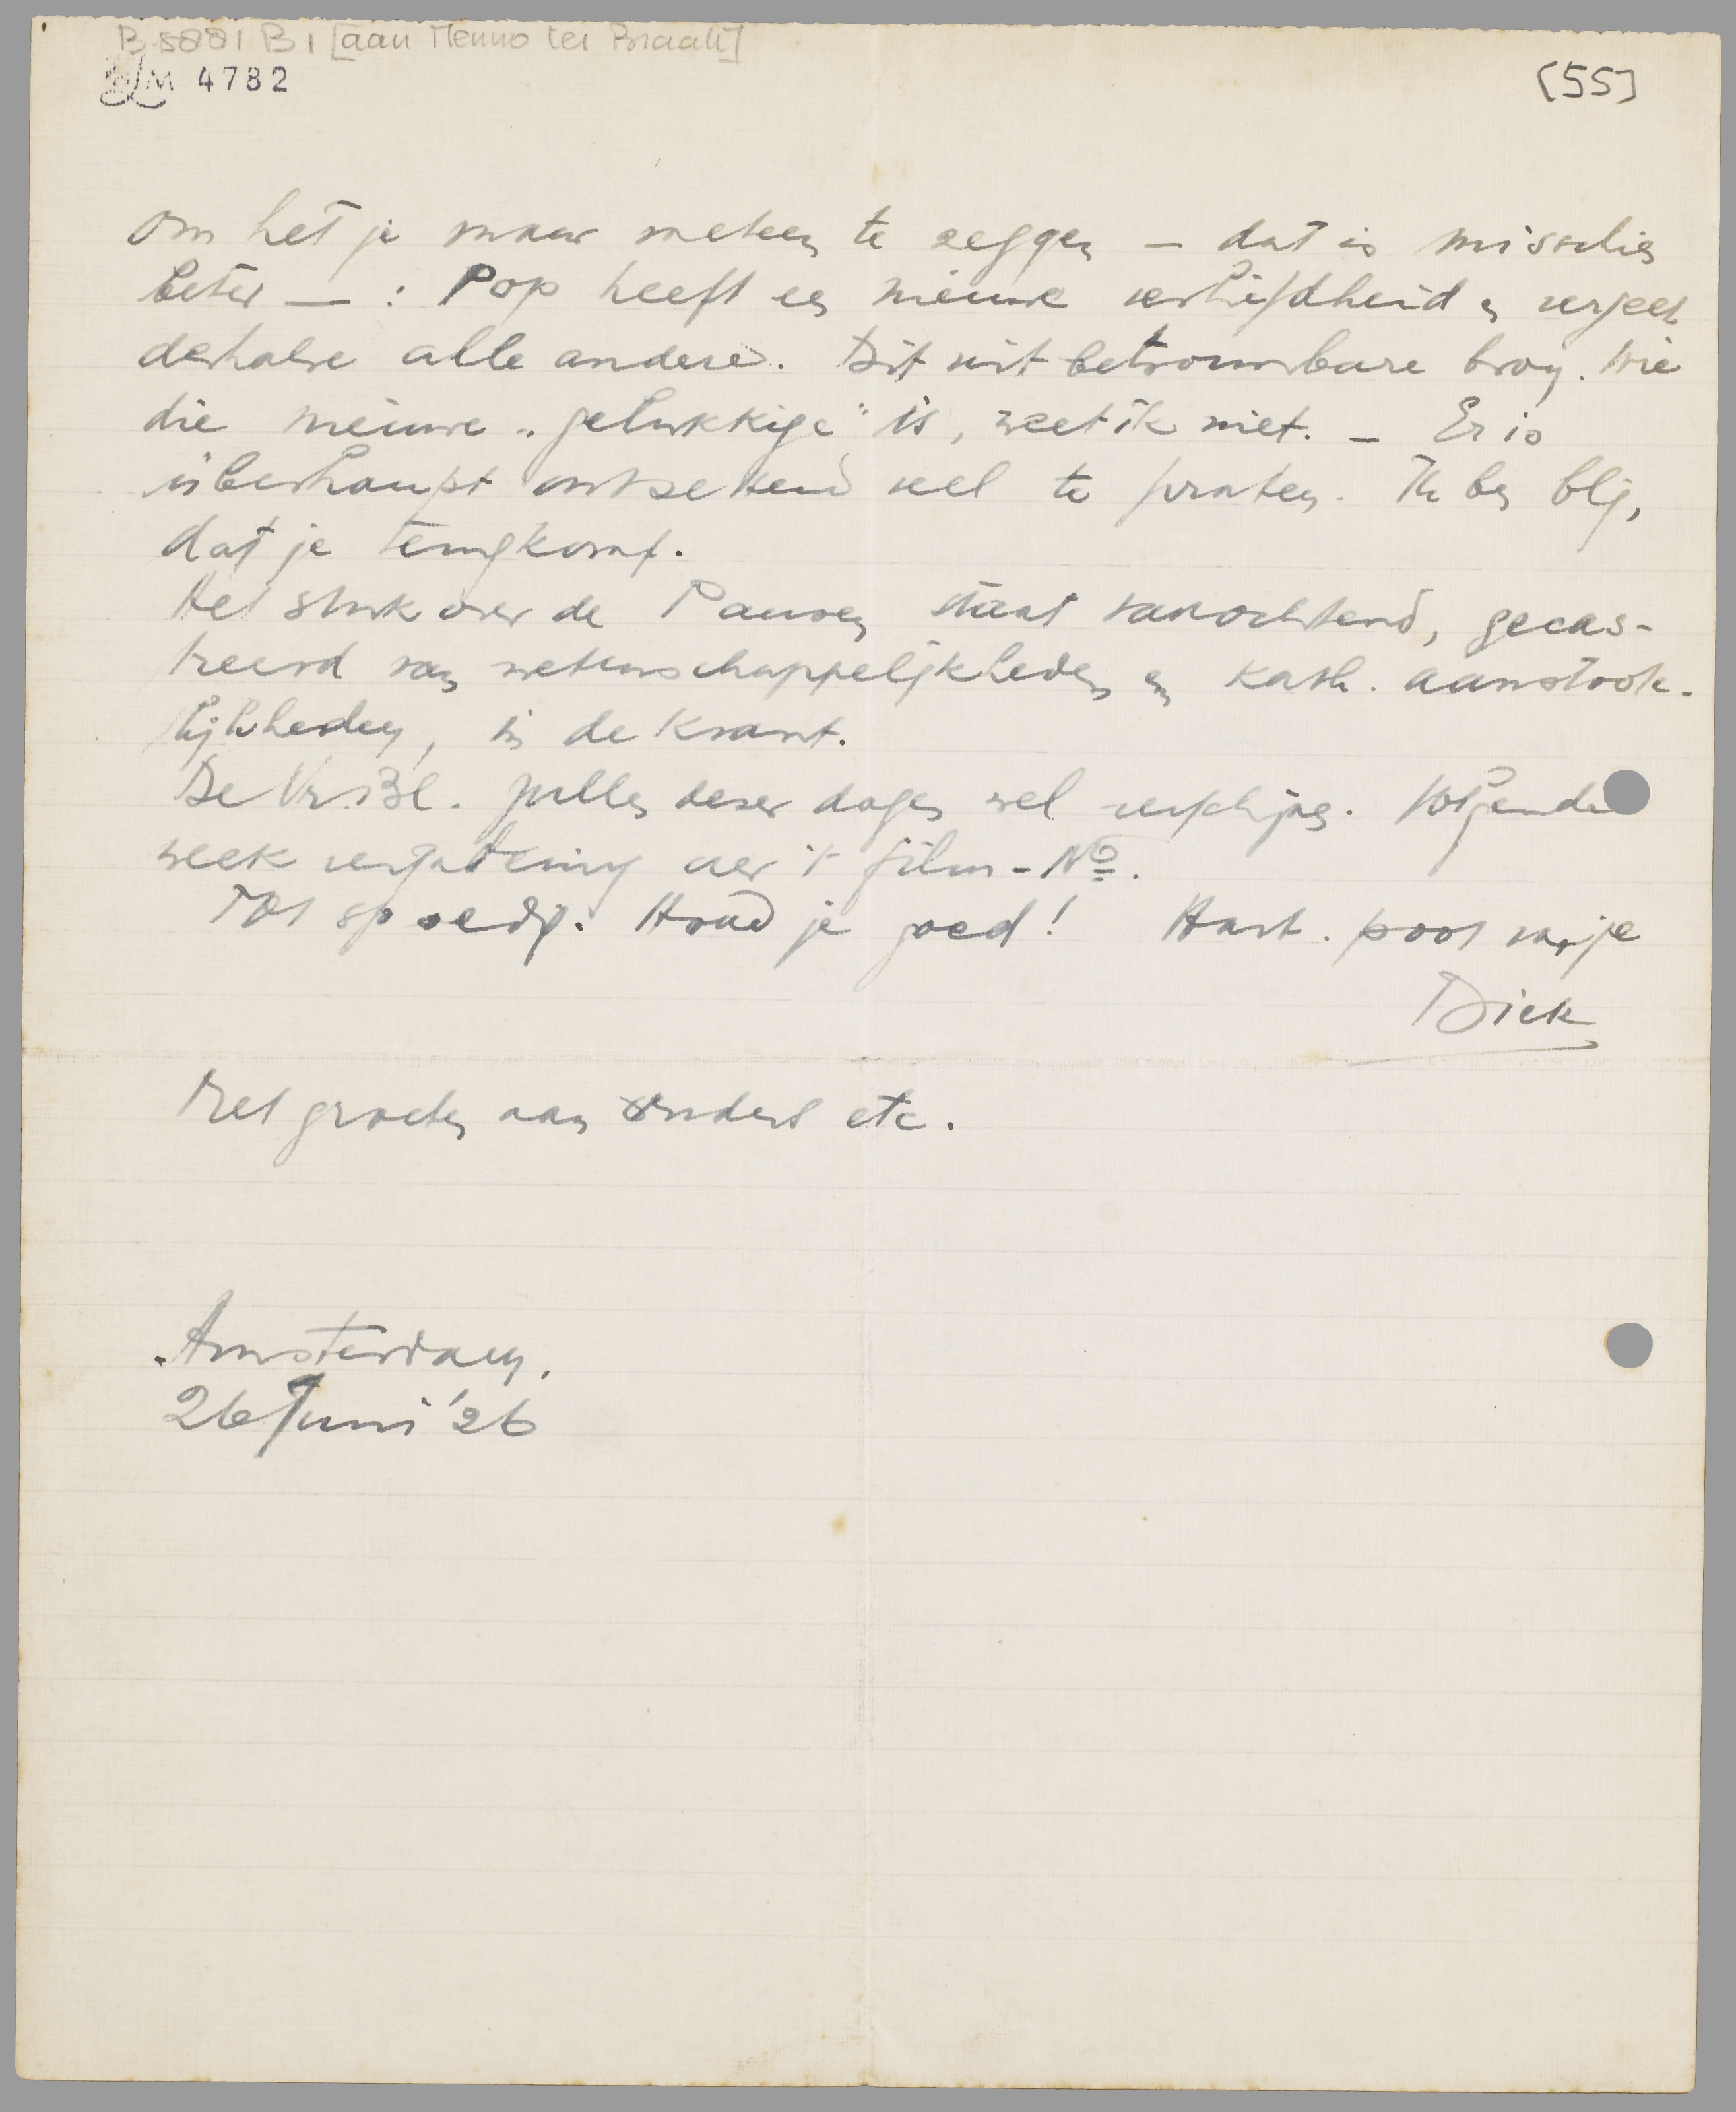 B 5881 B 1 [aan Menno ter Braak]
LM 4782
[55]
Om het je maar meteen te zeggen – dat is misschien
beter – : Pop heeft een nieuwe verliefdheid en vergeet
derhalve alle andere. Dit uit betrouwbare bron. Wie
die nieuwe „gelukkige" is, weet ik niet. – Er is
überhaupt ontzettend veel te praten. Ik ben blij,
dat je terugkomt.
Het stuk over de Pausen staat vanochtend, gecas-
treerd van wetenschappelijkheden en kath. aanstoote-
lijkheden, in de krant.
De Vr. Bl. zullen dezer dagen wel verschijnen. Volgende
week vergadering over 't film-No.
Tot spoedig. Houd je goed! Hart. poot van je
Dick
Met groeten aan ouders etc.
Amsterdam,
26 Juni '26